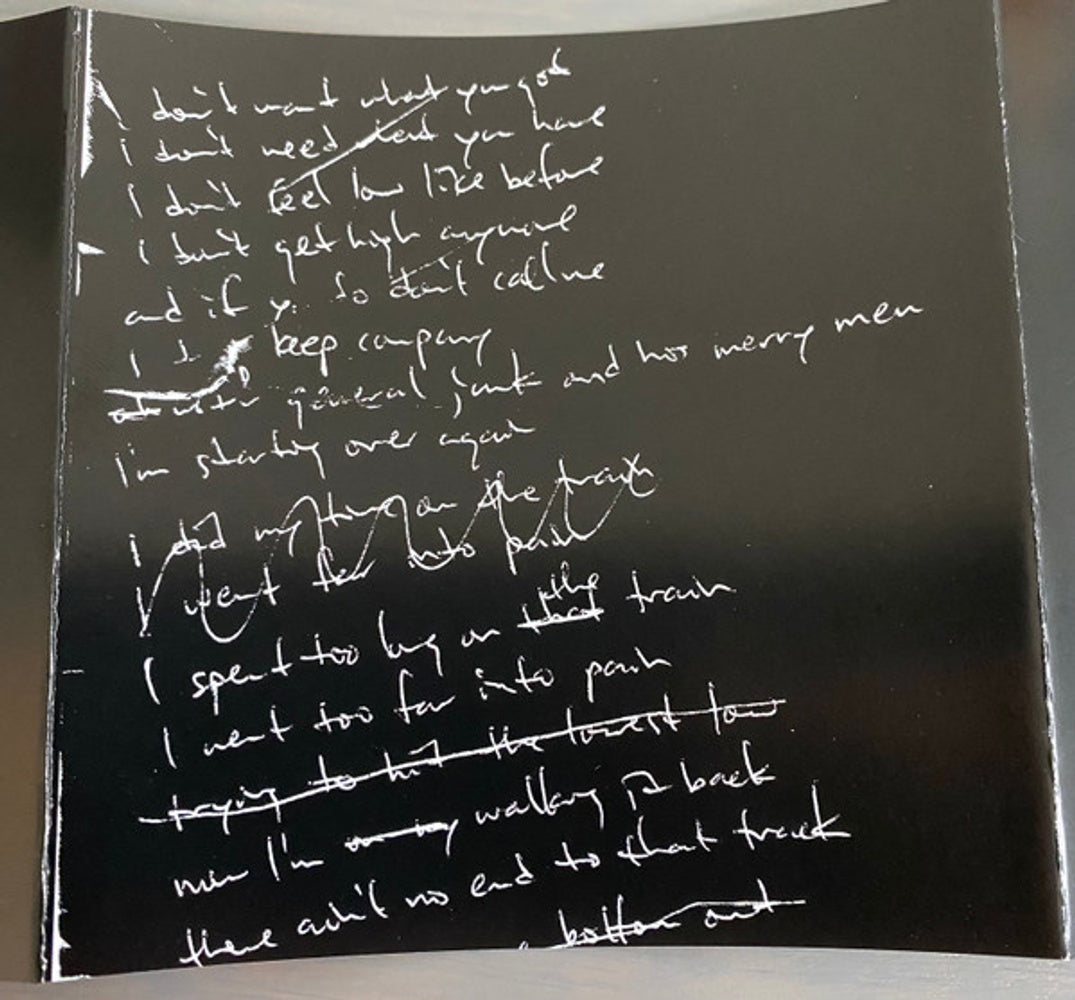 I don't want what you got
i don't need what you have
I don't feel low like before
I don't get high anymore
and if y. do don't call me
I keep company
with general junk and his merry men
I'm starting over again
i did my time on the train
I went far into pain
I spent too long on that the train
I went too far into pain
trying to hit the lowest low
now I'm walking it back
there ain't no end to that track
bottom out